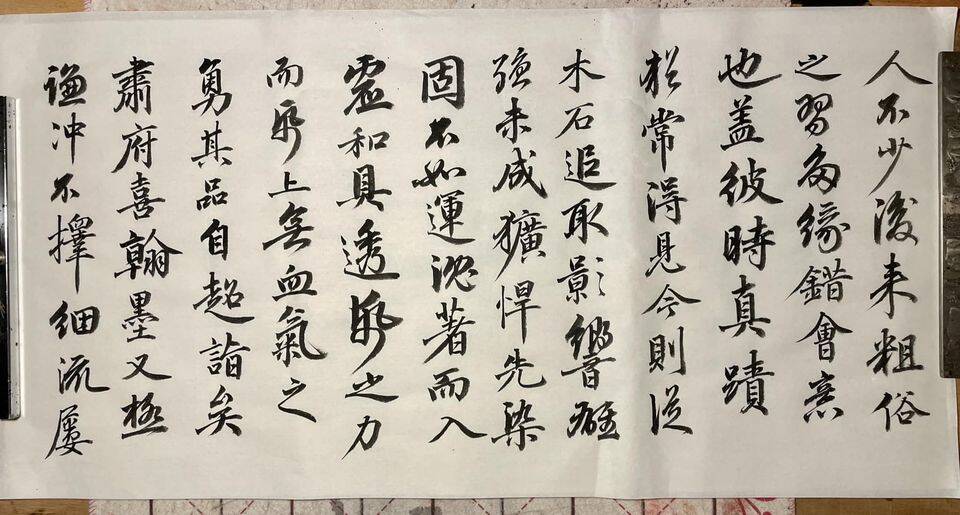 人不少後来粗俗
之習多緣錯會意
也盖彼時真蹟
扵常得見今則從
木石追取影響雄
強未成獷悍先染
固不如運沈著而入
虛和具透帋之力
而帋上無血氣之
勇其品自超詣矣
肅府喜翰墨又極
謙冲不擇細流屢